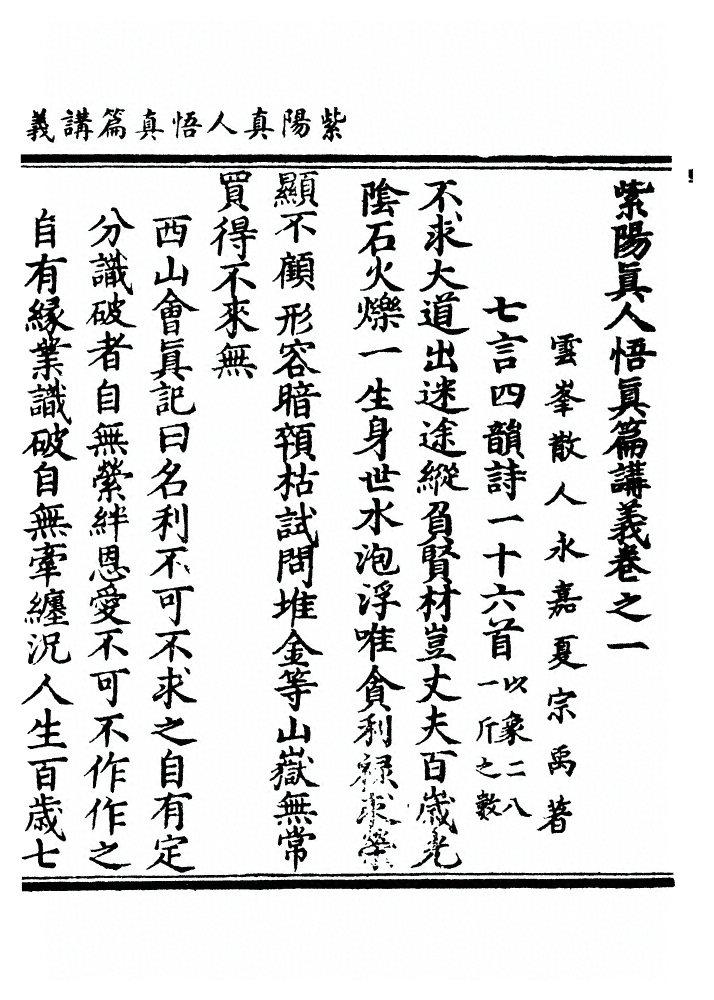 紫陽真人悟真篇講義
紫陽眞人悟眞篇講義卷之一
雲峯散人永嘉夏宗禹著
七言四韻詩一十六首以象二八一斤之數
不求大道出迷途縱負賢材豈丈夫百歲光
陰石火爍一生身世水泡浮唯貪利祿求榮
顯不顧形容暗顇枯試問堆金等山嶽無常
買得不來無
西山會眞記曰名利不可不求之自有定
分識破者自無縈絆恩愛不可不作作之
自有緣業識破自無牽纏況人生百歲七